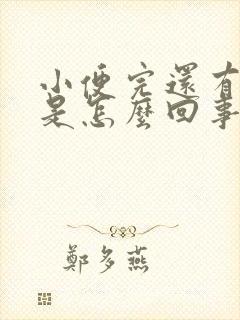 小便完還有
是怎麼回事
鄭多燕